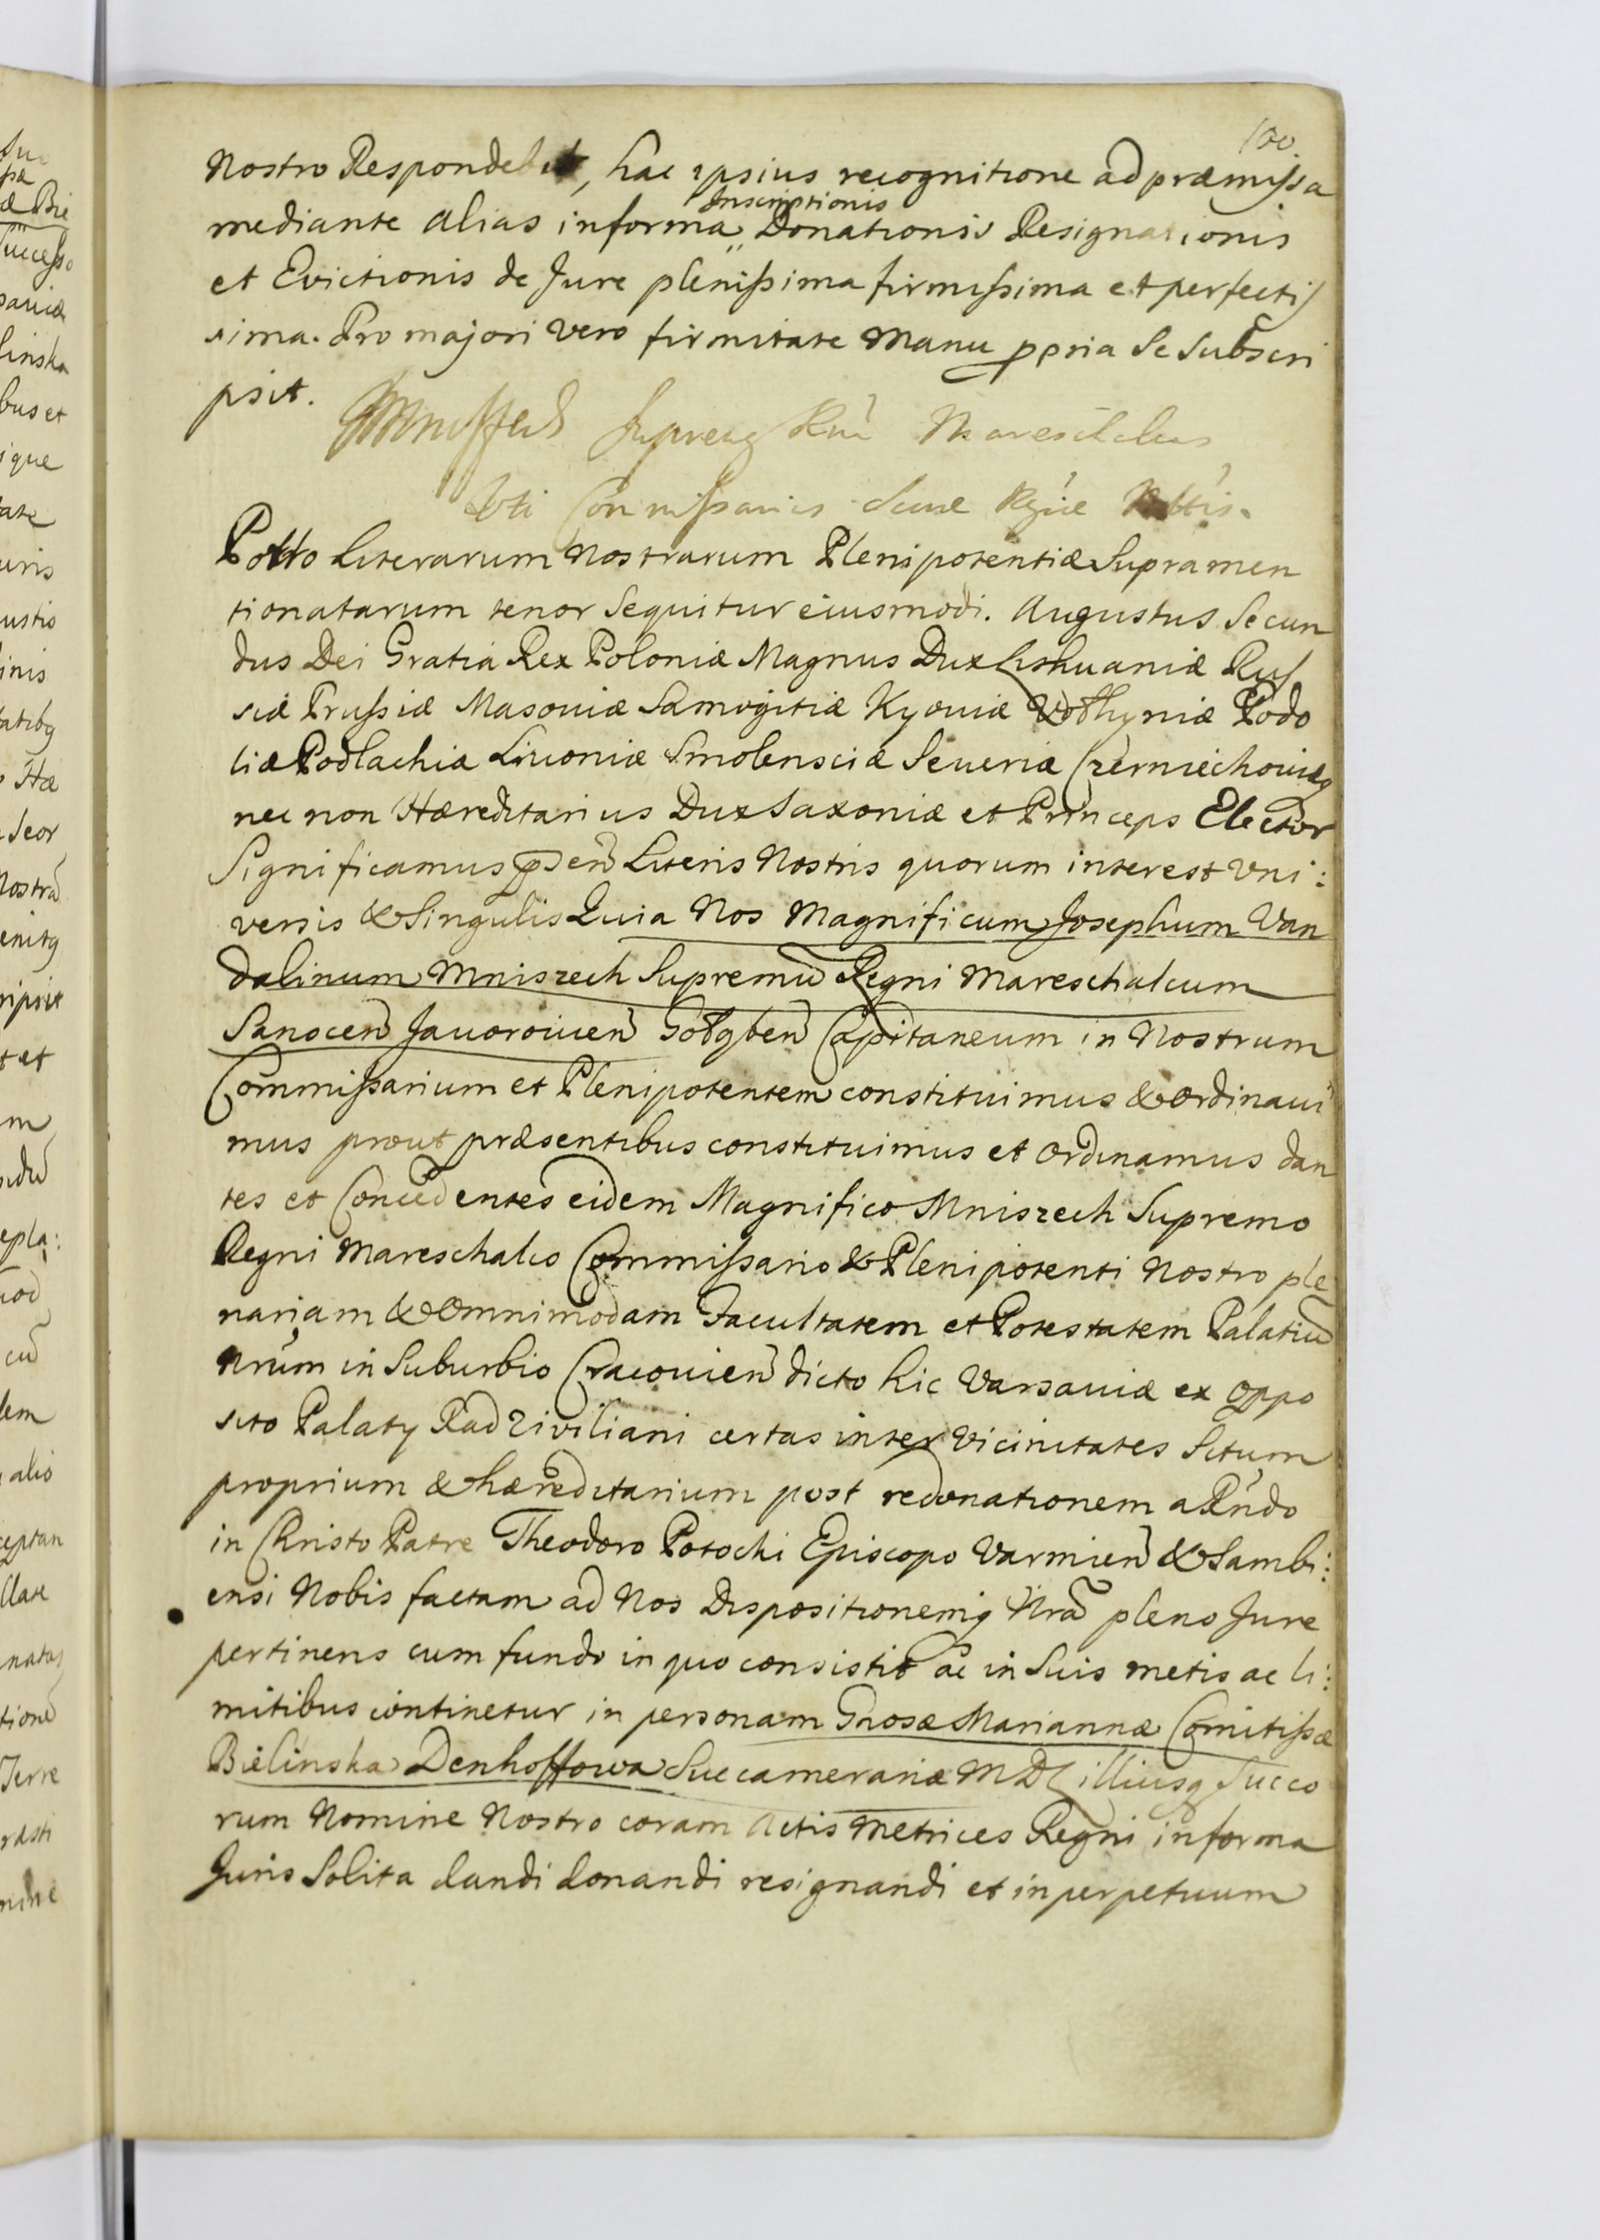 100.
Nostro Respondebit, hac ipsius recognitione ad præmissa
mediante alias in forma Inscriptionis Donationis Resignationis
et Evictionis de Jure plenissima firmissima et perfectis
sima. Pro majori vero firmitate Manu ppria Se Subscri
psit.
Mniszech Supremg Rni Mareschalcus
uti Commissarius Sacræ Rgiæ Mttis.
Porro Literarum Nostrarum Plenipotentiæ Supramen
tionatarum tenor Sequitur eiusmodi. Augustus Secun
dus Dei Gratia Rex Poloniæ Magnus Dux Lithuaniæ Rus
siæ Prussiæ Masoviæ Samogitiæ Kyoviæ Volhyniæ Podo
liæ Podlachiæ Livoniæ Smolensciæ Severiæ Czerniechoviæq
nec non Hæreditarius Dux Saxoniæ et Princeps Elector
Significamus psen Literis Nostris quorum interest Uni:
versis & Singulis Quia Nos Magnificum Josephum Van
dalinum Mniszech Supremu Regni Mareschalcum
Sanocen Javorovien Golgben Capitaneum in Nostrum
Commissarium et Plenipotentem constituimus & Ordinavi
mus prout præsentibus constituimus et Ordinamus dan
tes et Concedentes eidem Magnifico Mniszech Supremo
Regni Mareschalco Commissario & Plenipotenti Nostro ple
nariam & Omnimodam Facultatem et Potestatem Palatiu
Nrum in Suburbio Cracovien dicto hic Varsaviæ ex oppo
sito Palaty Radziviliani certas inter Vicinitates Situm
proprium & hæreditarium post redonationem a Rndo
in Christo Patre Theodoro Potocki Episcopo Varmien & Sambi:
ensi Nobis factam ad Nos Dispositionemq Nra pleno Jure
pertinens cum fundo in quo consistit ac in Suis metis ac li:
mitibus continetur in personam Gnosæ Mariannæ Comitissæ
Bielinska Denhoffowa Succamerariæ MDL illiusq Succo
rum Nomine Nostro coram Actis Metrices Regni in forma
Juris Solita dandi donandi resignandi et in perpetuum